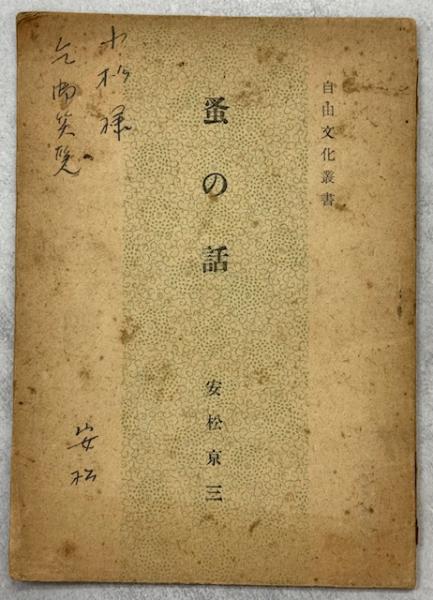 自由文化叢書
蚤の話
安松京三
小松様
乞御笑覧
安松